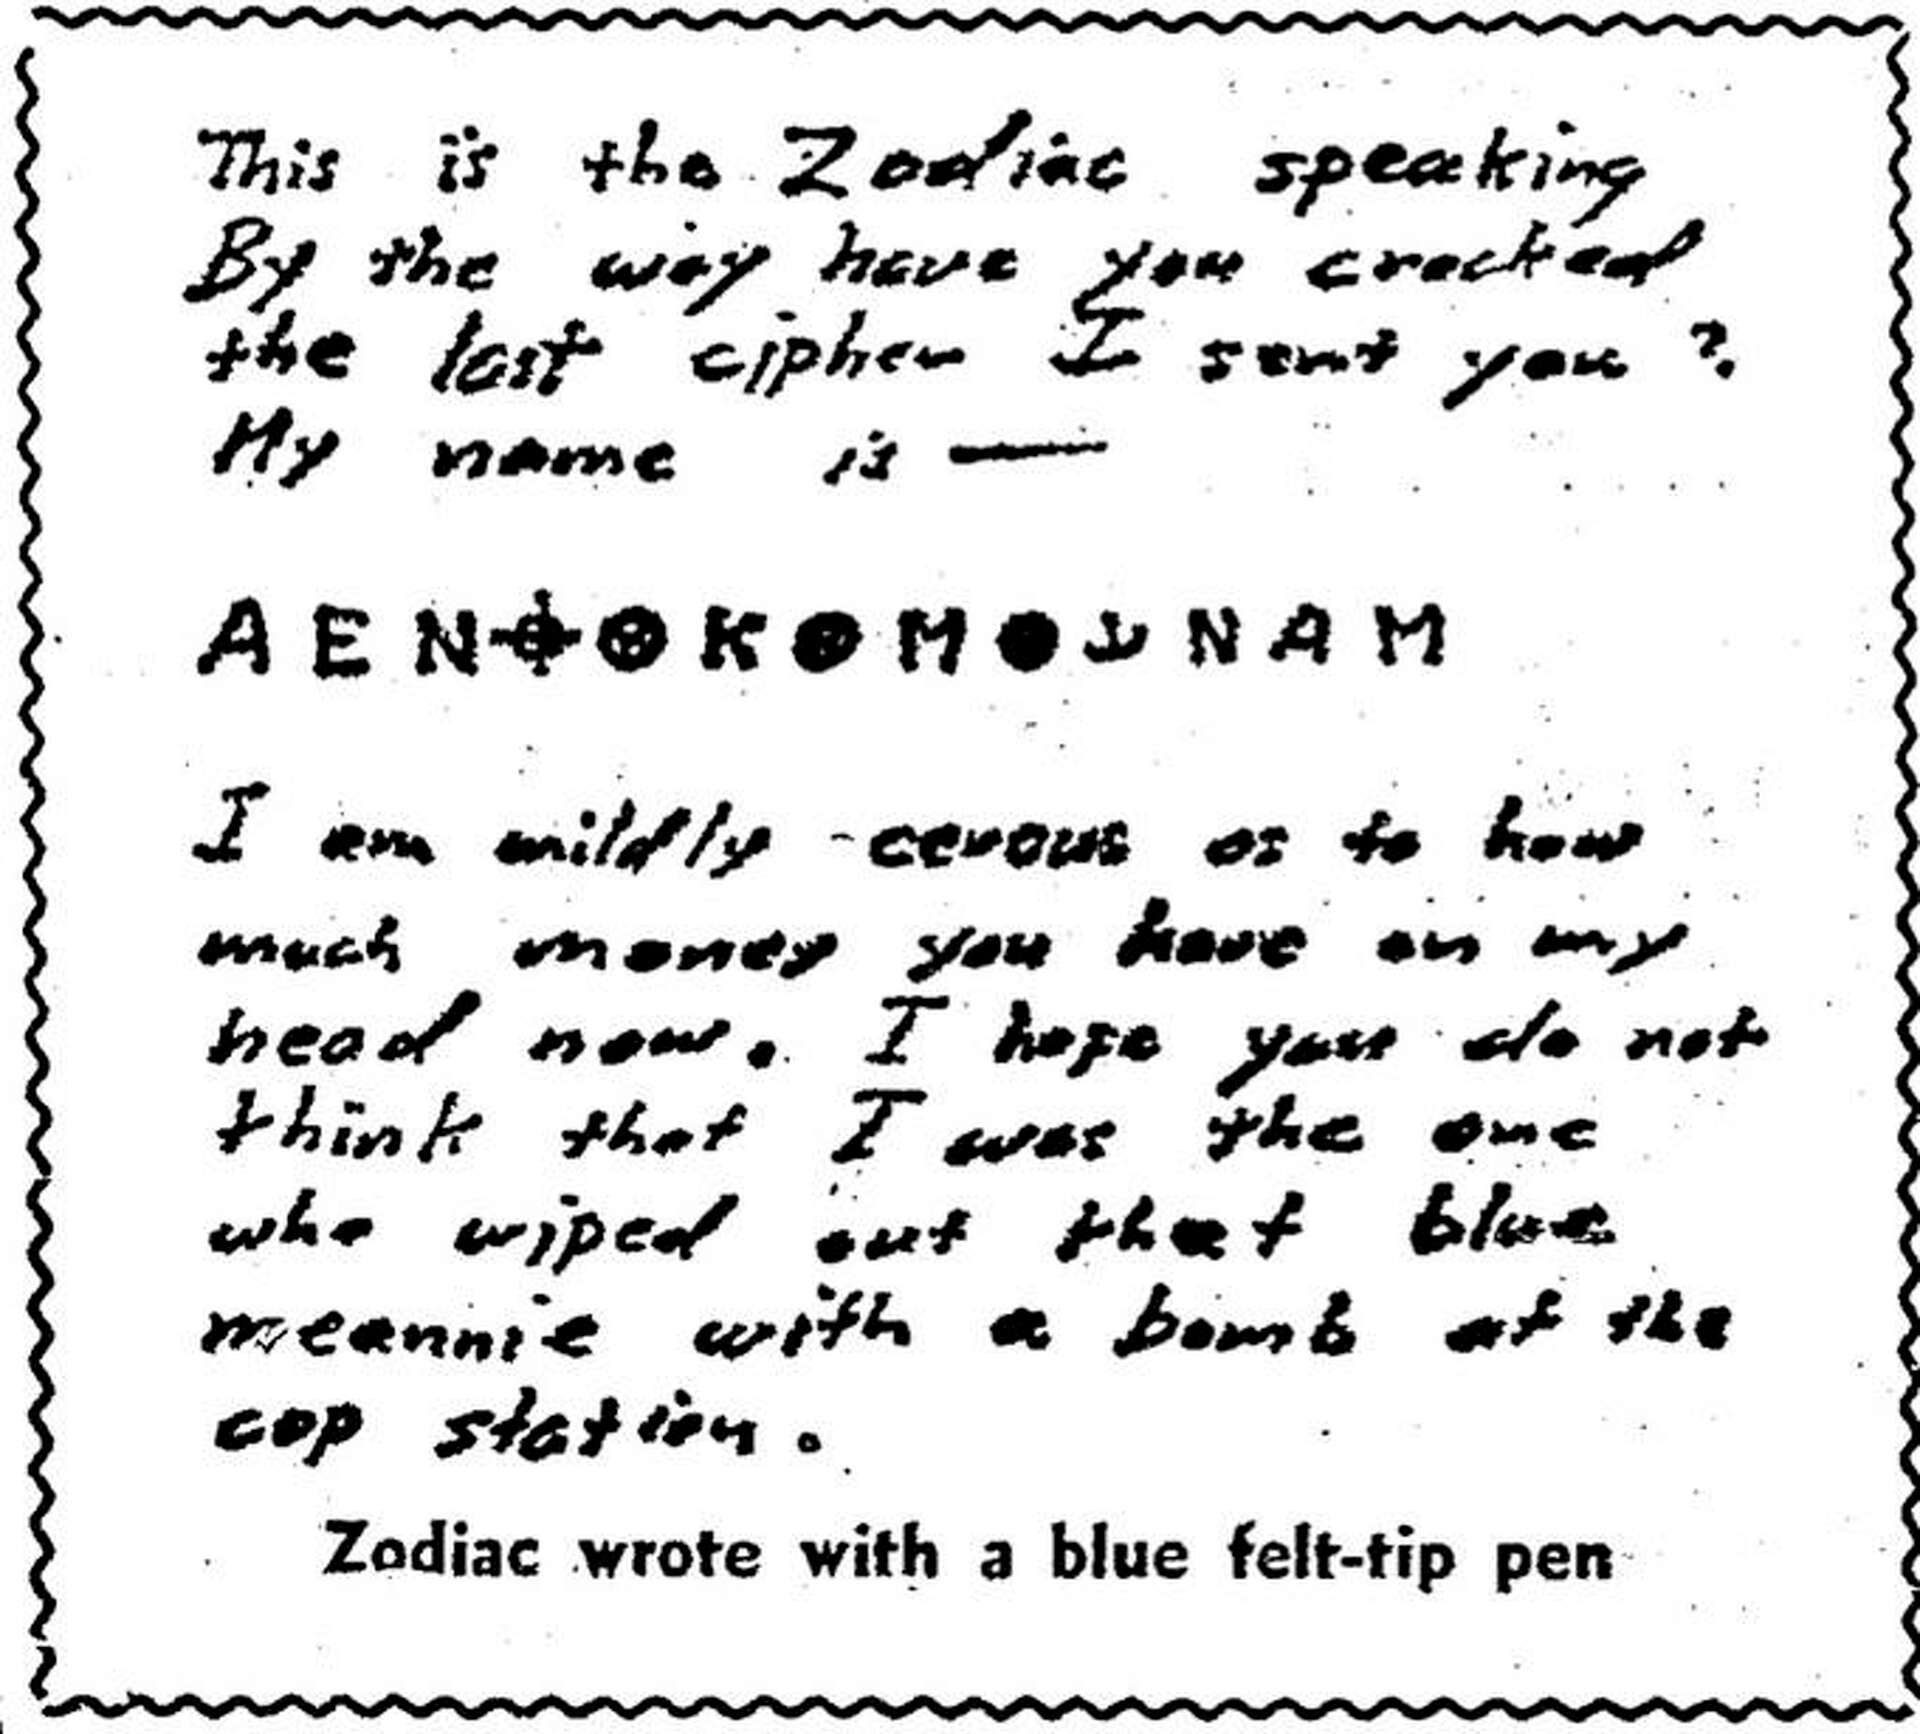 This is the Zodiac speaking
By the way have you cracked
the last cipher I sent you ?
My name is —
A E N ⌖ ⊗ K ⊗ M ⊗ N A M
I am mildly cerous as to how
much money you have on my
head now. I hope you do not
think that I was the one
who wiped out that blue
meannie with a bomb at the
cop station.
Zodiac wrote with a blue felt-tip pen